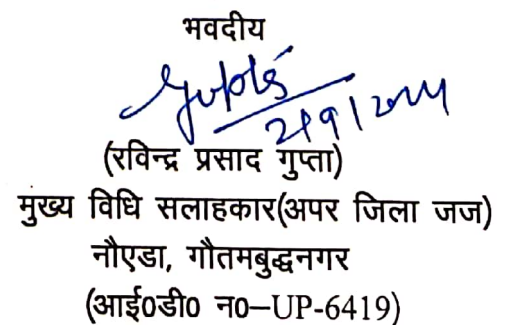 भवदीय
Gupta
(रविन्द्र प्रसाद गुप्ता)
मुख्य विधि सलाहकार(अपर जिला जज)
नौएडा, गौतमबुद्धनगर
(आई०डी० न०–UP-6419)